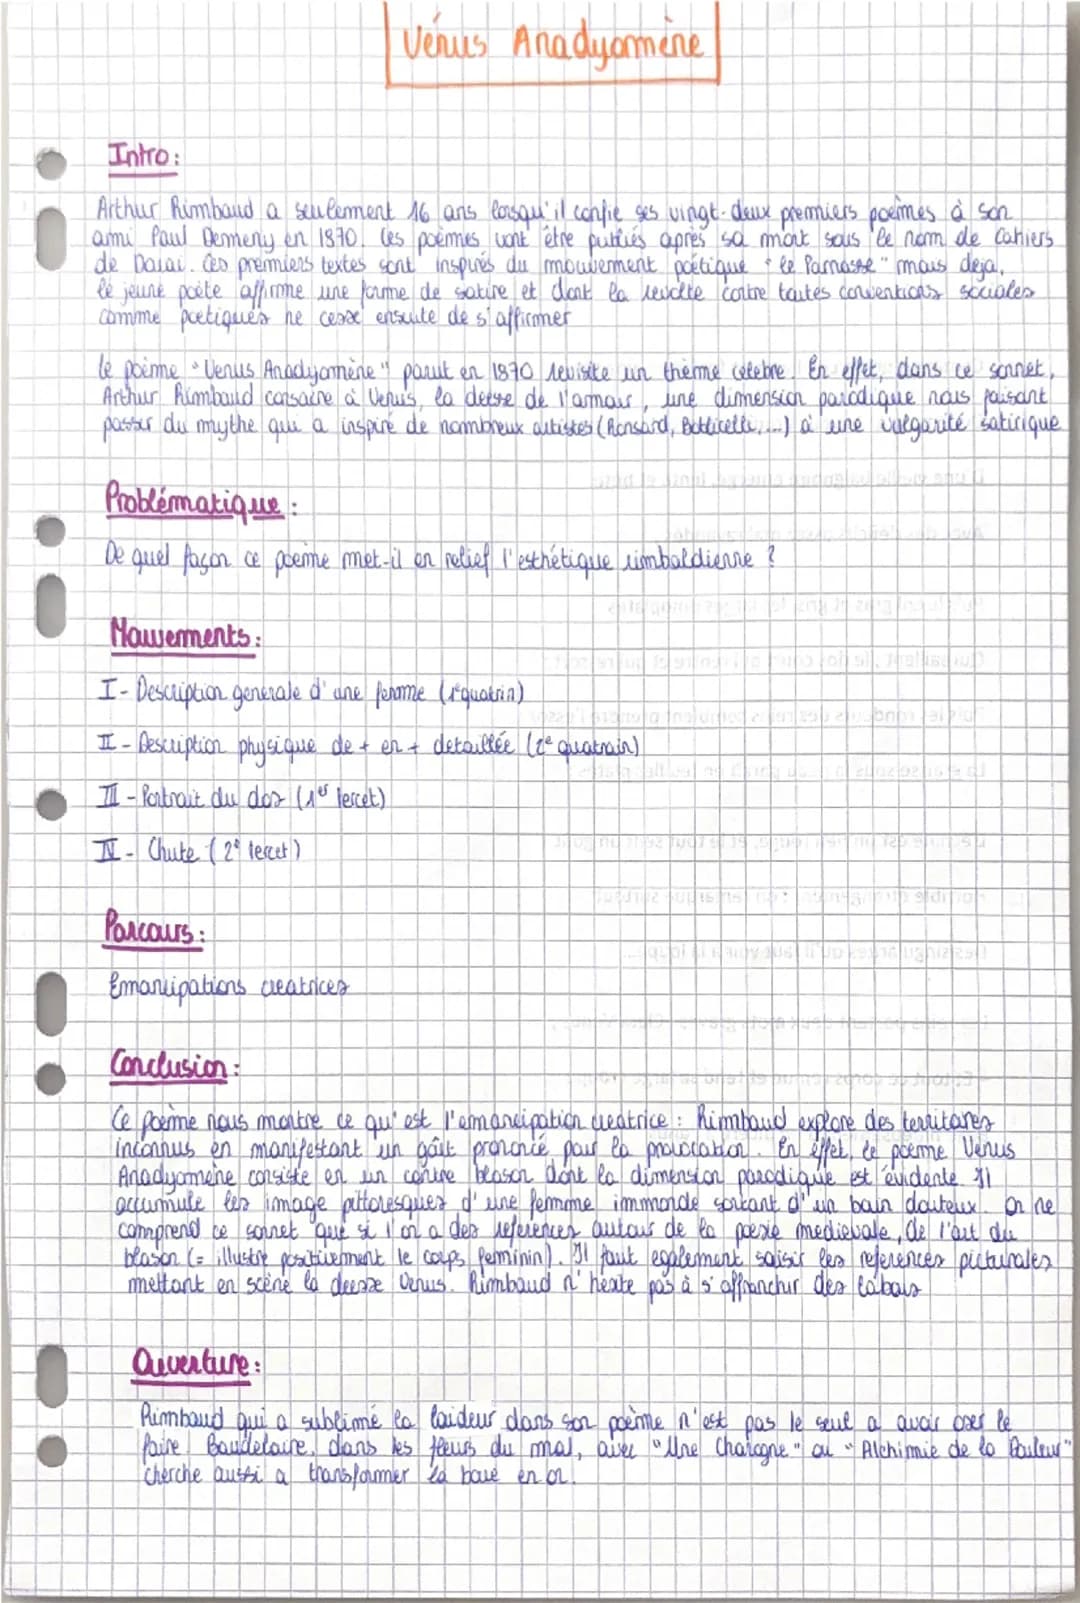 Vénus Anadyomène
Intro:
Arthur Rimbaud a seulement 16 ans lorsqu'il confie ses vingt-deux premiers poèmes à son
ami Paul Demeny en 1870. Ces poèmes vont être publiés après sa mort sous le nom de Cahiers
de Douai. Ces premiers textes sont inspirés du mouvement poétique "le Parnasse" mais déjà,
le jeune poète affirme une forme de satire et dont la révolte contre toutes conventions sociales
comme poétiques ne cesse ensuite de s'affirmer
Le poème "Venus Anadyomène" parut en 1870 revisite un thème célèbre. En effet, dans ce sonnet,
Arthur Rimbaud consacre à Venus, la déesse de l'amour, une dimension parodique nous faisant
passer du mythe qui a inspiré de nombreux artistes (Ronsard, Botticelli, ...) à une vulgarité satirique
Problématique:
De quel façon ce poème met-il en relief l'esthétique rimbaldienne ?
Mouvements:
I- Description generale d'une femme (1er quatrin)
II- Description physique de + en + detaillée (2e quatrain)
III- Portrait du dos (1er tercet)
IV- Chute (2e tercet)
Parcours:
Emancipations creatrices
Conclusion:
Ce poème nous montre ce qu'est l'emancipation creatrice : Rimbaud explore des territoires
inconnus en manifestant un goût prononcé pour la provocation. En effet, le poème Venus
Anadyomène consiste en un contre blason dont la dimension parodique est évidente. Il
accumule les image pittoresques d'une femme immonde sortant d'un bain douteux. On ne
comprend ce sonnet que si l'on a des references autour de la poesie medievale, de l'art du
blason (= illustre positivement le corps feminin). Il faut egalement saisir les references picturales
mettant en scène la deesse Venus. Rimbaud n'hesite pas à s'affranchir des tabous
Ouverture:
Rimbaud qui a sublimé la laideur dans son poème n'est pas le seul a avoir oser le
faire. Baudelaire, dans les fleurs du mal, avec "Une Charogne" ou "Alchimie de la Douleur"
cherche aussi a transformer la boue en or.